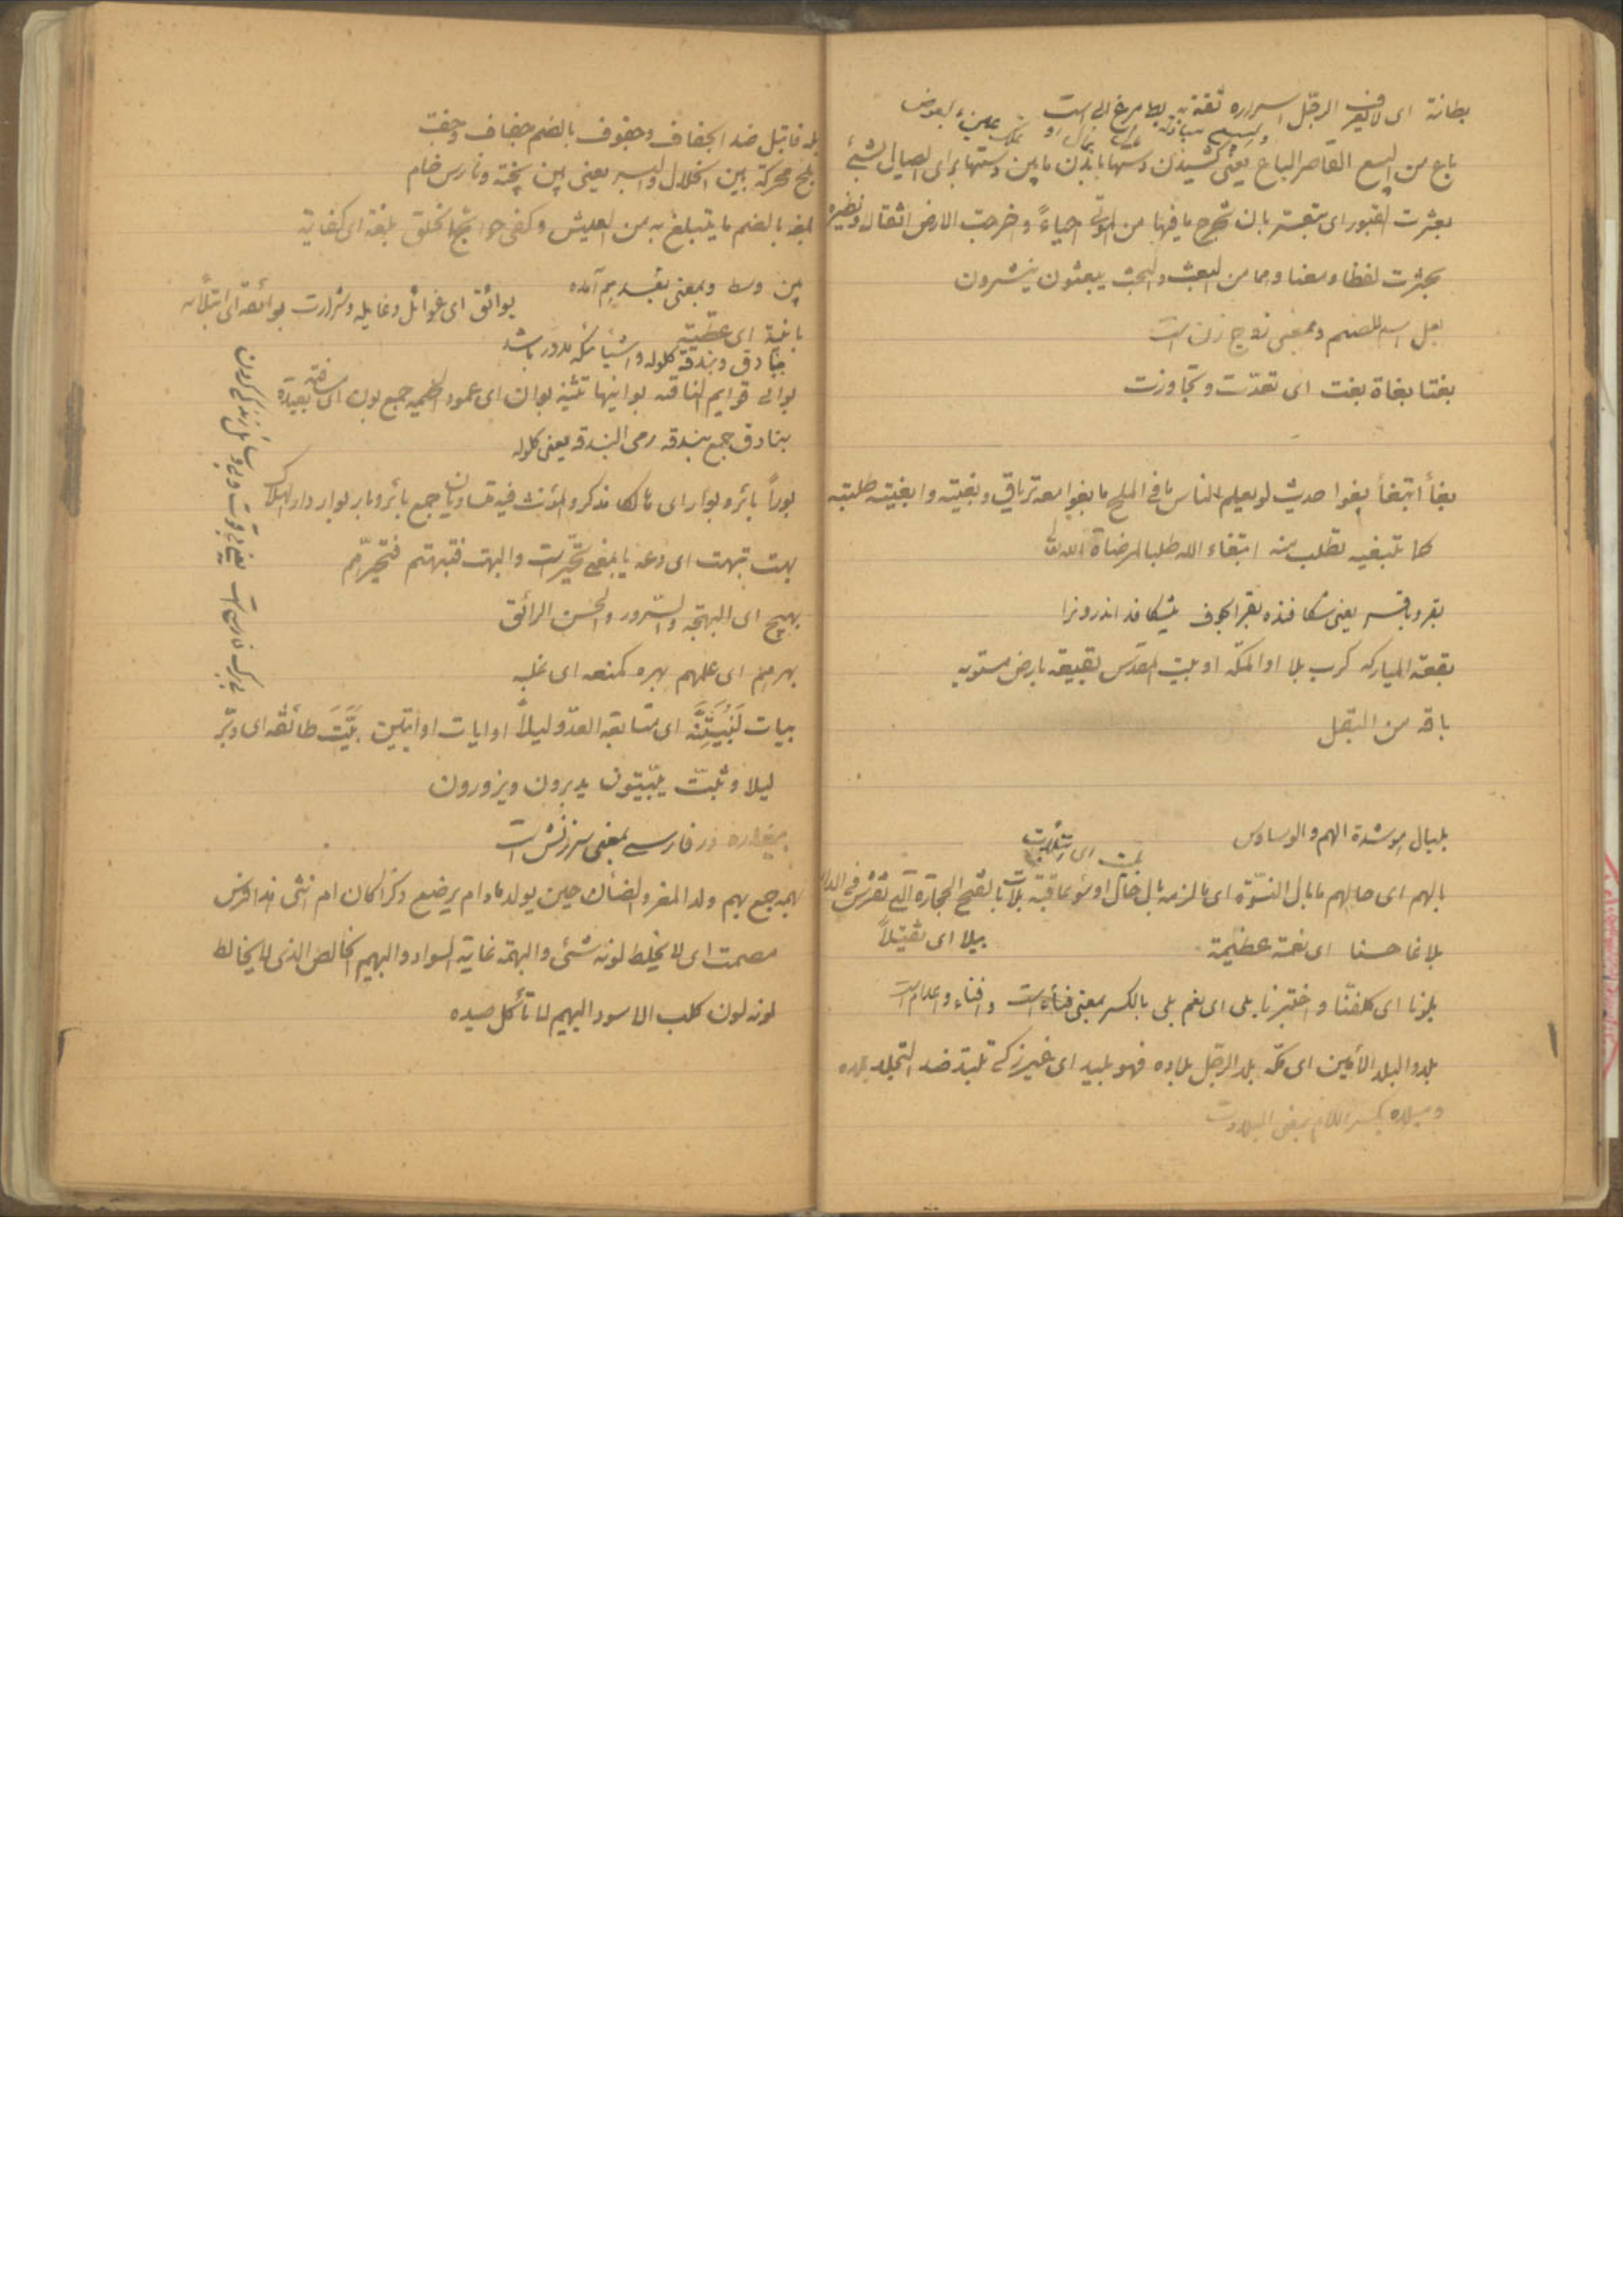 بطانة ای لا یعرف الرجل اسراره ثقة به بط مرغابی است
باع من البیع القاصر الباع یعنی کشیدن دستها باندن مابین دستها برای ایصال الشیئ
بعثرت القبور ای تبعثر بان تخرج ما فیها من الموتی احیاءً و اخرجت الارض اثقالها و نظیره
بحثرت لفظا و معنا و هما من البعث و البحث یبعثون ینشرون
بعل اسم للصنم و بمعنی زوج زن است
بغتا بغاة بغت ای تعدّت و تجاوزت
بغأ ابتغأ بغوا حدیث لو یعلم الناس ما فی الملح ما بغوا معه تریاق و بغیته و ابغیته طلبته
کما تبتغیه تطلب منه ابتغاء الله طلبا لمرضاة الله
بقر و باقر یعنی شکافنده بقر الجوف بشکافد اندرونرا
بقعة المبارکه کرب بلا او المکه او بیت المقدس بقیعة بارض مستویه
باقه من البقل
بلبال هو شدة الهم و الوساوس
بالهم ای حالهم ما بال النسوة ای ما لزمه بال حال او سوء عاقبة بلاط بالفتح الحجارة التی تفرش فی الدار
بلاغا حسنا ای نعمة عظیمة
بیلا ای ثقیلاً
بلونا ای کلفنا و اختبرنا بلی ای نعم بلی بالکسر بمعنی فنأ است و افناء و اعدام است
بلد و البلد الأمین ای مکه بلد الرجل بلاده فهو بلید ای غیر زکی تبلد ضد التجلد بلده
و میلاد بکسر اللام بمعنی البلادت
بله فابتل ضد الجفاف و جفوف بالضم جفاف و جفت
بلح محرکة بین الخلال و البسر یعنی بین پخته و نارس خام
بلغه بالضم ما یتبلغ به من العیش و کفی حوائج الخلق بلغة ای کفایة
بین وسط و بمعنی بعد هم آمده
بوائق ای غوائل و غایله و شرارت بوائقه ای ابتلائه
بانیة ای عطیّة
بنادق و بندقه کلوله و اشیائیکه مدور باشد
بوانی قوایم الناقه بوانیها تثنیه بوان ای عمود الخیمه جمع بون ای مسافة بعیدة
بنادق جمع بندقه رمی البندقه یعنی کلوله
بوراً بائر و بوار ای هالکا مذکر و المؤنث فیه متساویان جمع بائر و بایر بوار دار الهلاک
بهت تبهت ای دعه یا بمعنی تحیّرت و البهت فتبهتهم فتحیّرهم
بهیج ای البهجة و السّرور و الحسن الرائق
بهرهم ای علیهم بهره کمنعه ای غلبه
بیات لَنُبَیِّتَنَّه ای متابعة العدو لیلاً او ایات او ابیّتن بَیَّتَ طائفه ای دبّر
لیلا و ثبت یبیّتون یدبرون و یزورون
بیغاره در فارسی بمعنی سرزنش است
بهم جمع بهم ولد المعز و الضأن حین یولد مادام یرضع ذکرا کان ام انثی
مصمت ای لا یخلط لونه شئی و البهمة غایة السواد و البهیم الخالص الذی لا یخالط
لونه لون کلب الاسود البهیم لا تأکل صیده